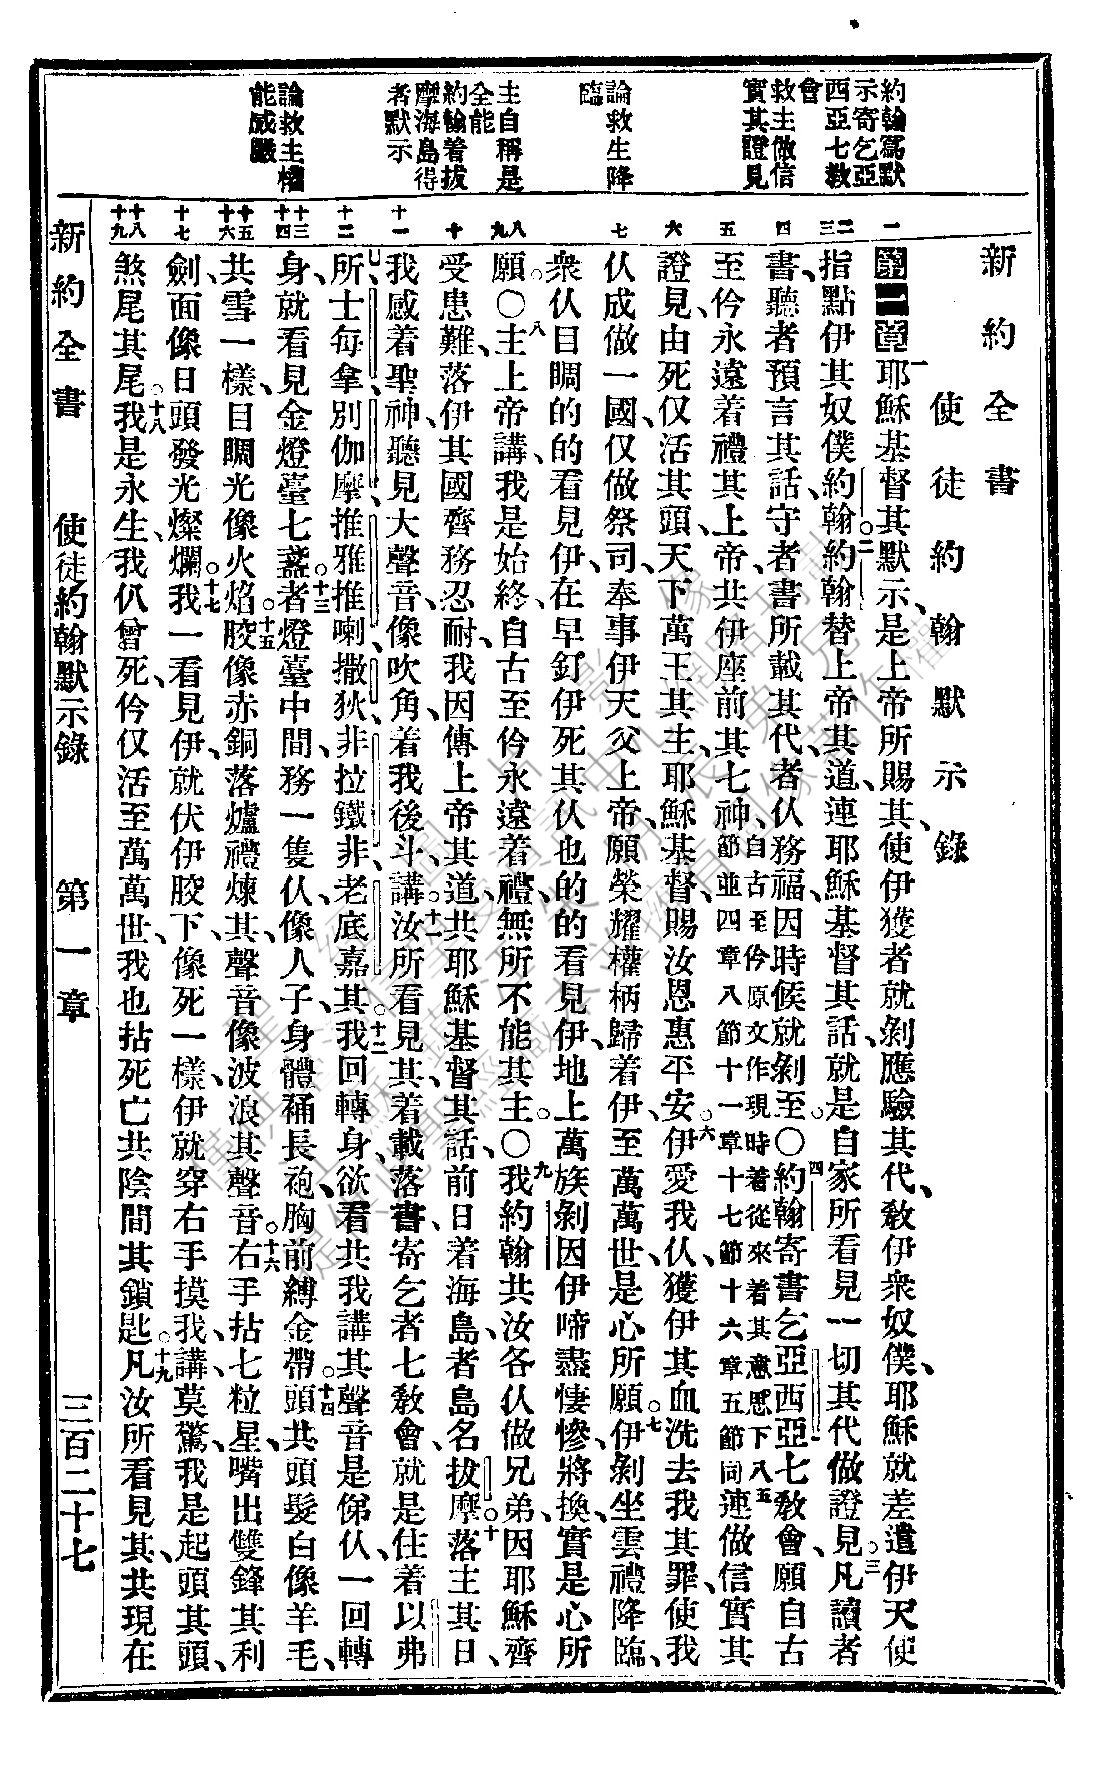 新約全書
使徒約翰默示錄
第一章 一耶穌基督其默示、是上帝所賜其、使伊獲者就剝應驗其代、敎伊衆奴僕、耶穌就差遣伊天使
指點伊其奴僕約翰。二約翰替上帝其道、連耶穌基督其話、就是自家所看見一切其代做證見。三凡讀者
書、聽者預言其話、守者書所載其代、者仈務福、因時候就剝至。○四約翰寄書乞亞西亞七敎會、願自古
至仱永遠着禮其上帝、共伊座前其七神、自古至仱原文作現時着從來着其意思下八節並四章八節十一章十七節十六章五節同五連做信實其
證見、由死仅活其頭、天下萬王其主、耶穌基督、賜汝恩惠平安。六伊愛我仈、獲伊其血洗去我其罪、使我
仈成做一國、仅做祭司、奉事伊天父上帝、願榮耀權柄歸着伊、至萬萬世、是心所願。七伊剝坐雲禮降臨、
衆仈目睭的的看見伊、在早釘伊死其仈也的的看見伊、地上萬族剝因伊啼盡悽慘、將換、實是心所
願。○八主上帝講、我是始終、自古至仱永遠着禮、無所不能其主。○九我約翰共汝各仈做兄弟、因耶穌齊
受患難、落伊其國齊務忍耐、我因傳上帝其道、共耶穌基督其話、前日着海島、者島名拔摩。十落主其日、
我感着聖神、聽見大聲音、像吹角、着我後斗、十一講、汝所看見其、着載落書、寄乞者七敎會、就是住着以弗
所、士每拿、別伽摩、推雅推喇、撒狄、非拉鐵非、老底嘉其。十二我回轉身、欲看共我講其聲音是俤仈、一回轉
身、就看見金燈臺七盞。十三者燈臺中間務一隻仈、像人子、身體䘼長袍、胸前縛金帶。十四頭共頭髮白像羊毛、
共雪一樣、目睭光像火焰。十五骹像赤銅落爐禮煉其、聲音像波浪其聲音。十六右手拈七粒星、嘴出雙鋒其利
劍、面像日頭發光燦爛。十七我一看見伊、就伏伊骹下、像死一樣、伊就穿右手摸我、講、莫驚、我是起頭其、頭
煞尾其尾。十八我是永生、我仈曾死、仱仅活至萬萬世、我也拈死亡共陰間其鎖匙。十九凡汝所看見其、共現在
約翰寫默示寄乞亞西亞七敎會
救主做信實其證見
論救主降臨
主自稱是全能
約翰着拔摩海島得者默示
論救主權能威嚴
一
二三
四
五
六
七
八九
十
十一
十二
十三十四
十五十六
十七
十八十九
新約全書 使徒約翰默示錄 第一章 三百二十七